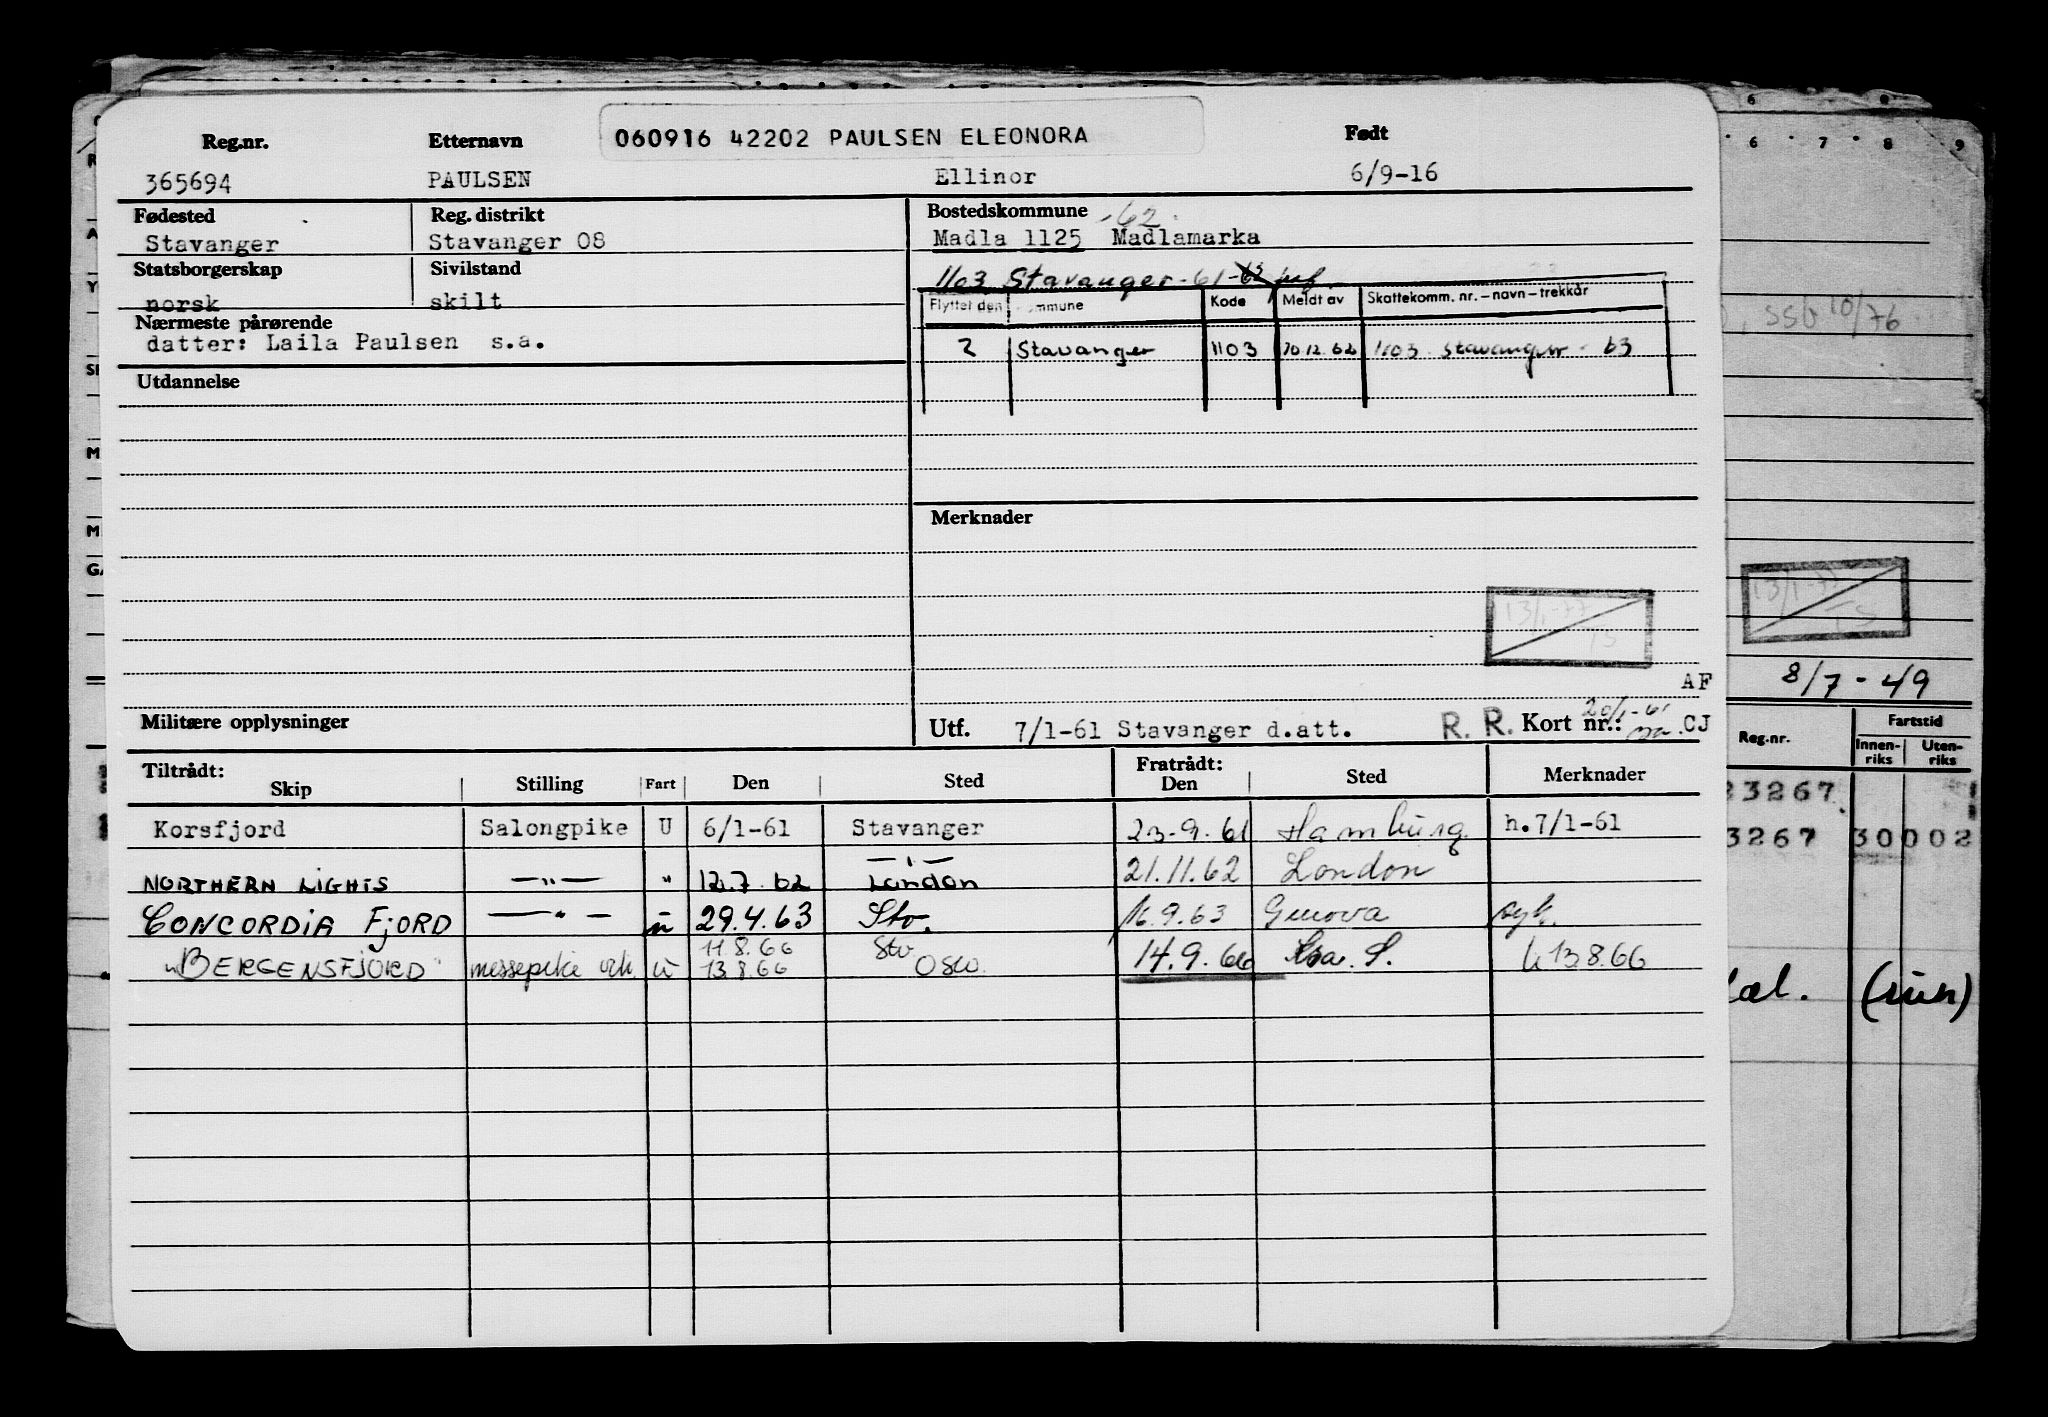 060916 42202 PAULSEN ELEONORA
Reg.nr. Etternavn Født
365694 PAULSEN Ellinor 6/9-16
Fødested Reg. distrikt Bostedskommune -62.
Stavanger Stavanger 08 Madla 1125 Madlamarka
Statsborgerskap Sivilstand 1103 Stavanger-61-
norsk skilt
Flyttet den Kode Meldt av Skattekomm. nr.–navn–trekkår
Nærmeste pårørende
datter: Laila Paulsen s.a.
2 Stavanger 1103 20.12.62 1103 Stavanger - 63
SSB 10/76
Utdannelse
Merknader
13/1-77 TS
13/1-77 TS
8/7-49
AF
Militære opplysninger Utf. 7/1-61 Stavanger d.att. R. R. Kort nr.: 20/1-61 CJ
Reg.nr. Fartstid
Innen-riks Uten-riks
Tiltrådt: Fratrådt:
Skip Stilling Fart Den Sted Den Sted Merknader
Korsfjord Salongpike U 6/1-61 Stavanger 23-9-61 Hamburg h.7/1-61
23267
3267 30002
NORTHERN LIGHTS —"— " 12.7.62 London 21.11.62 London
CONCORDIA FJORD —"— u 29.4.63 Stv. 16.9.63 Genova syk.
"BERGENSFJORD" messepike u 11.8.66 Stv.
13.8.66 Oslo 14.9.66 h 13.8.66